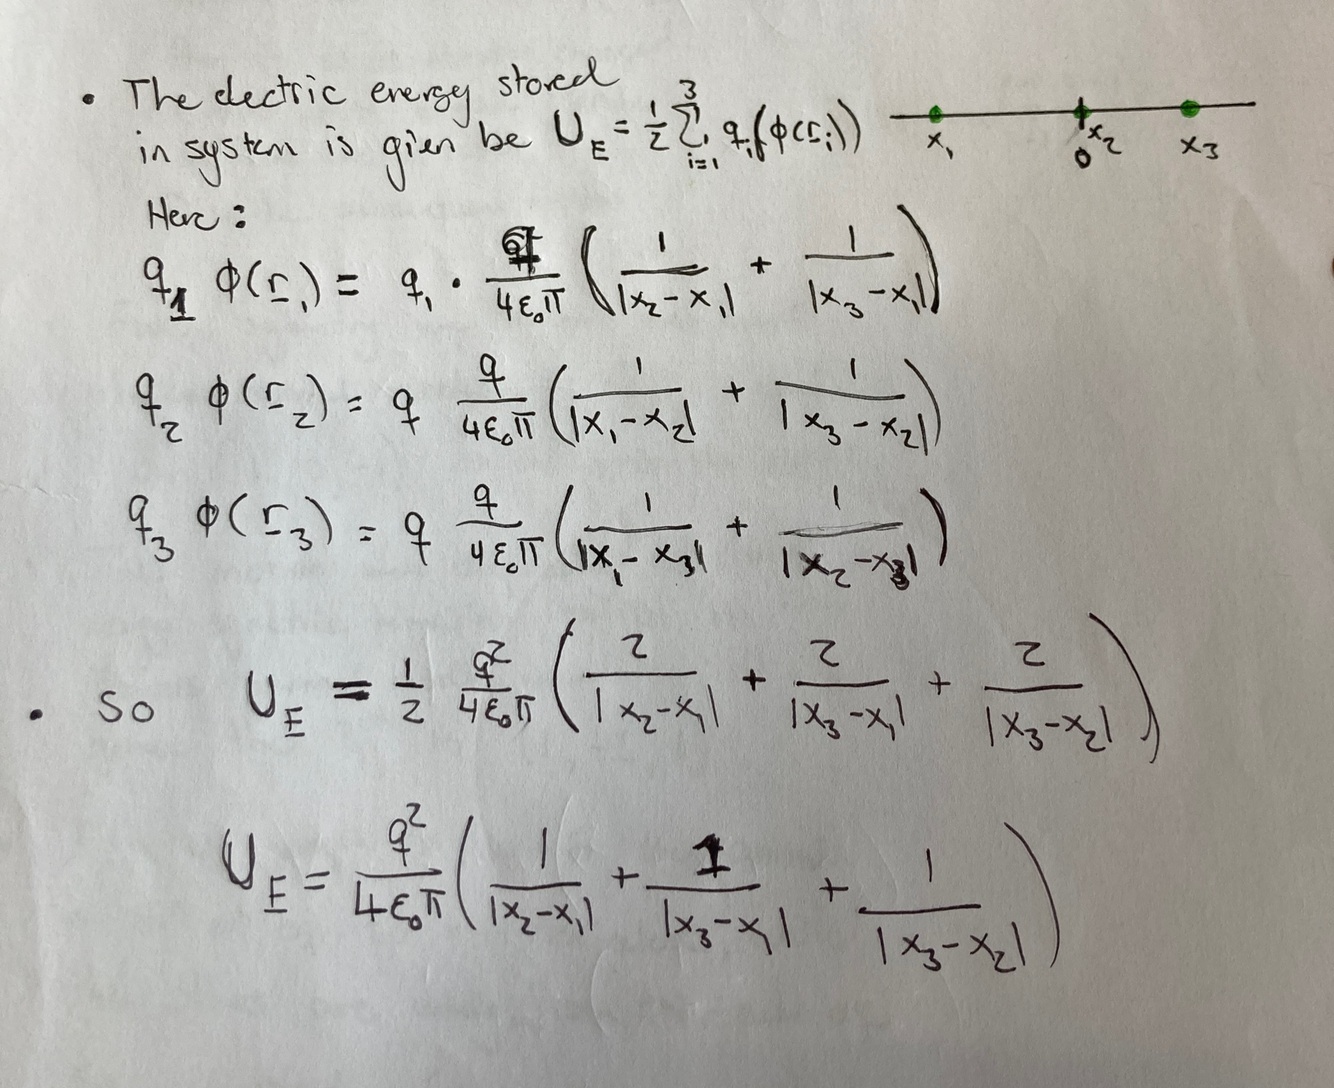 • The electric energy stored
in system is gien be U_E = 1/2 Σ_{i=1}^{3} q_i (φ(r_i))
x_1 x_2 0 x_3
Here:
q_1 φ(r_1) = q_1 · q/(4ε_0π) (1/|x_2 - x_1| + 1/|x_3 - x_1|)
q_2 φ(r_2) = q q/(4ε_0π) (1/|x_1 - x_2| + 1/|x_3 - x_2|)
q_3 φ(r_3) = q q/(4ε_0π) (1/|x_1 - x_3| + 1/|x_2 - x_3|)
• So U_E = 1/2 q^2/(4ε_0π) (2/|x_2 - x_1| + 2/|x_3 - x_1| + 2/|x_3 - x_2|)
U_E = q^2/(4ε_0π) (1/|x_2 - x_1| + 1/|x_3 - x_1| + 1/|x_3 - x_2|)